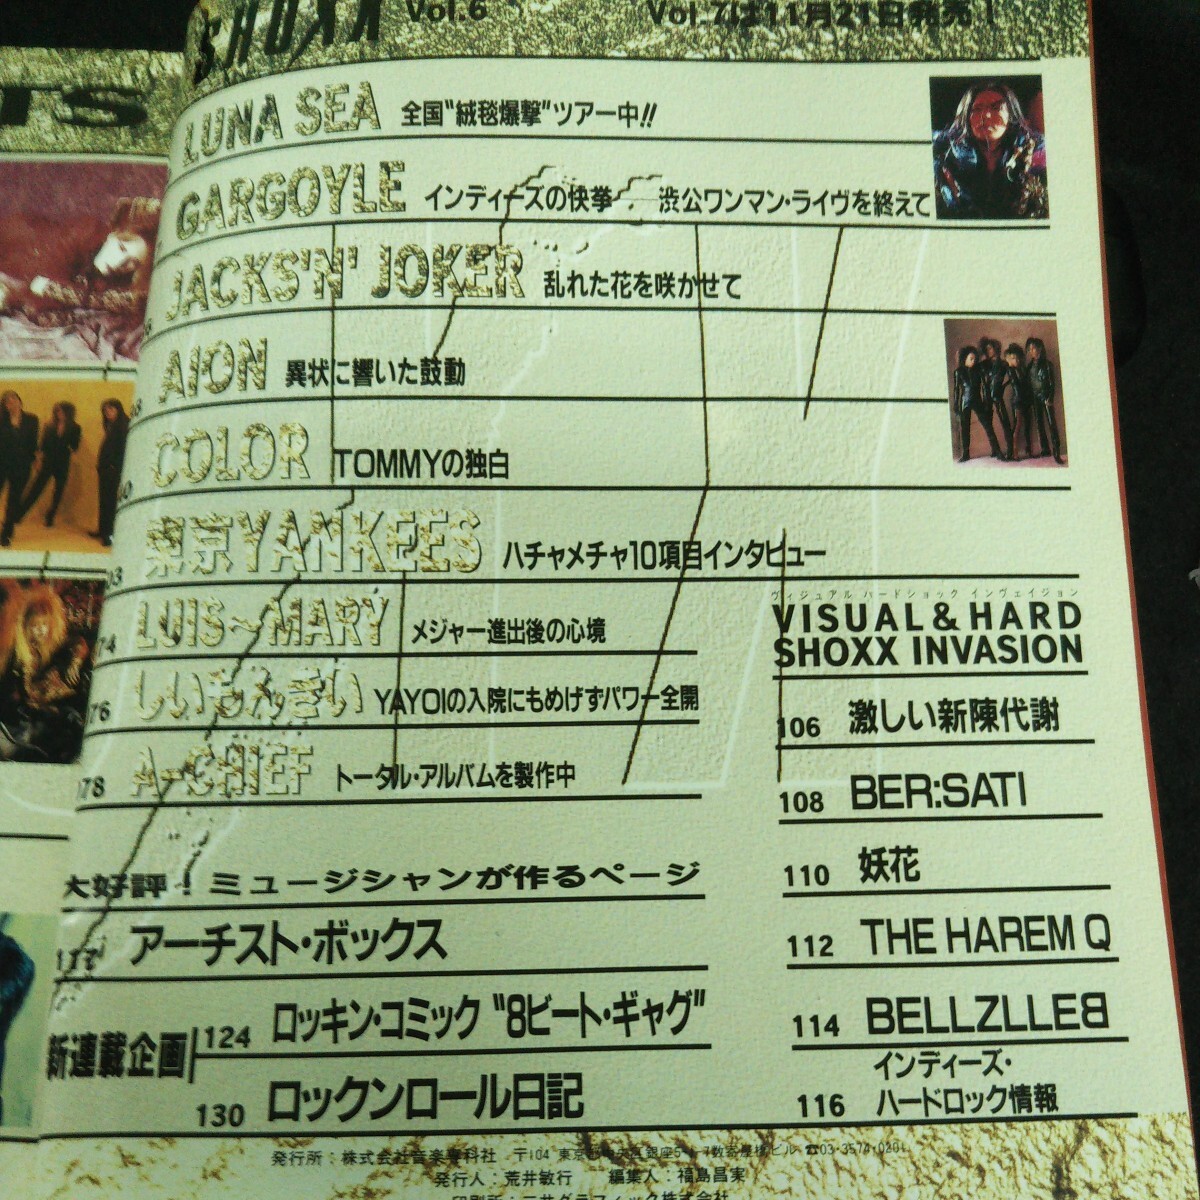 TS
SHOXX Vol.6 Vol.7は11月21日発売！
LUNA SEA 全国“絨毯爆撃”ツアー中!!
GARGOYLE インディーズの快挙 渋公ワンマン・ライヴを終えて
JACKS'N' JOKER 乱れた花を咲かせて
AION 異状に響いた鼓動
COLOR TOMMYの独白
東京YANKEES ハチャメチャ10項目インタビュー
LUIS~MARY メジャー進出後の心境
76 YAYOIの入院にもめげずパワー全開
78 A-CHIEF トータル・アルバムを製作中
大好評！ミュージシャンが作るページ
アーチスト・ボックス
新連載企画
124 ロッキン・コミック “8ビート・ギャグ”
130 ロックンロール日記
ヴィジュアル ハードショック インヴェイジョン
VISUAL & HARD
SHOXX INVASION
106 激しい新陳代謝
108 BER:SATI
110 妖花
112 THE HAREM Q
114 BELLZLLEB
116 インディーズ・
ハードロック情報
発行所：株式会社音楽専科社 〒104 東京都中央区銀座 ビル ☎03・3574・0201
発行人：荒井敏行 編集人：福島昌実